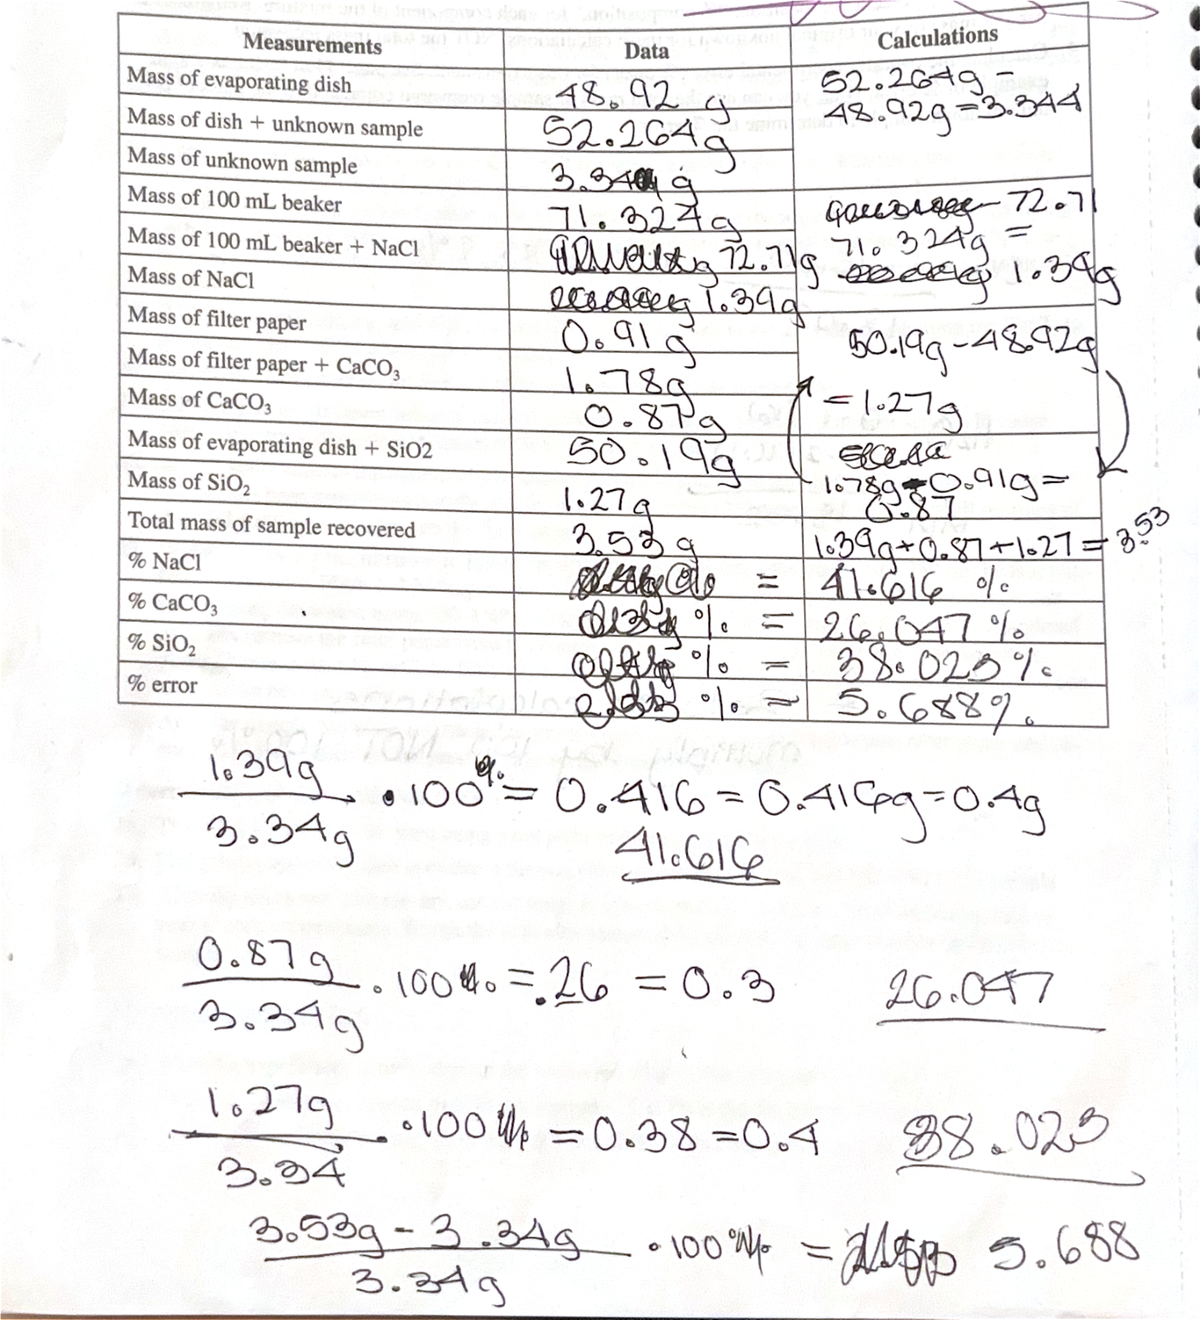 Measurements Data Calculations
Mass of evaporating dish 48.92 g 52.264g -
48.92g = 3.344
Mass of dish + unknown sample 52.264g
Mass of unknown sample 3.34 g
Mass of 100 mL beaker 71.324g 72.71
Mass of 100 mL beaker + NaCl 72.71g 71.324g =
1.39g
Mass of NaCl 1.39g
Mass of filter paper 0.91g 50.19g - 48.92g
Mass of filter paper + CaCO₃ 1.78g
= 1.27g
Mass of CaCO₃ 0.87g
Mass of evaporating dish + SiO2 50.19g
Mass of SiO₂ 1.27g 1.78g - 0.91g =
0.87
Total mass of sample recovered 3.53g 1.39g + 0.87 + 1.27 = 3.53
% NaCl = 41.616 %
% CaCO₃ % = 26.047 %
% SiO₂ % = 38.023 %
% error % = 5.688 %
1.39g
3.34g
· 100% = 0.416 = 0.416g = 0.4g
41.616
0.87g
3.34g
· 100% = .26 = 0.3 26.047
1.27g
3.34
· 100% = 0.38 = 0.4 38.023
3.53g - 3.34g
3.34g
· 100% = 5.688